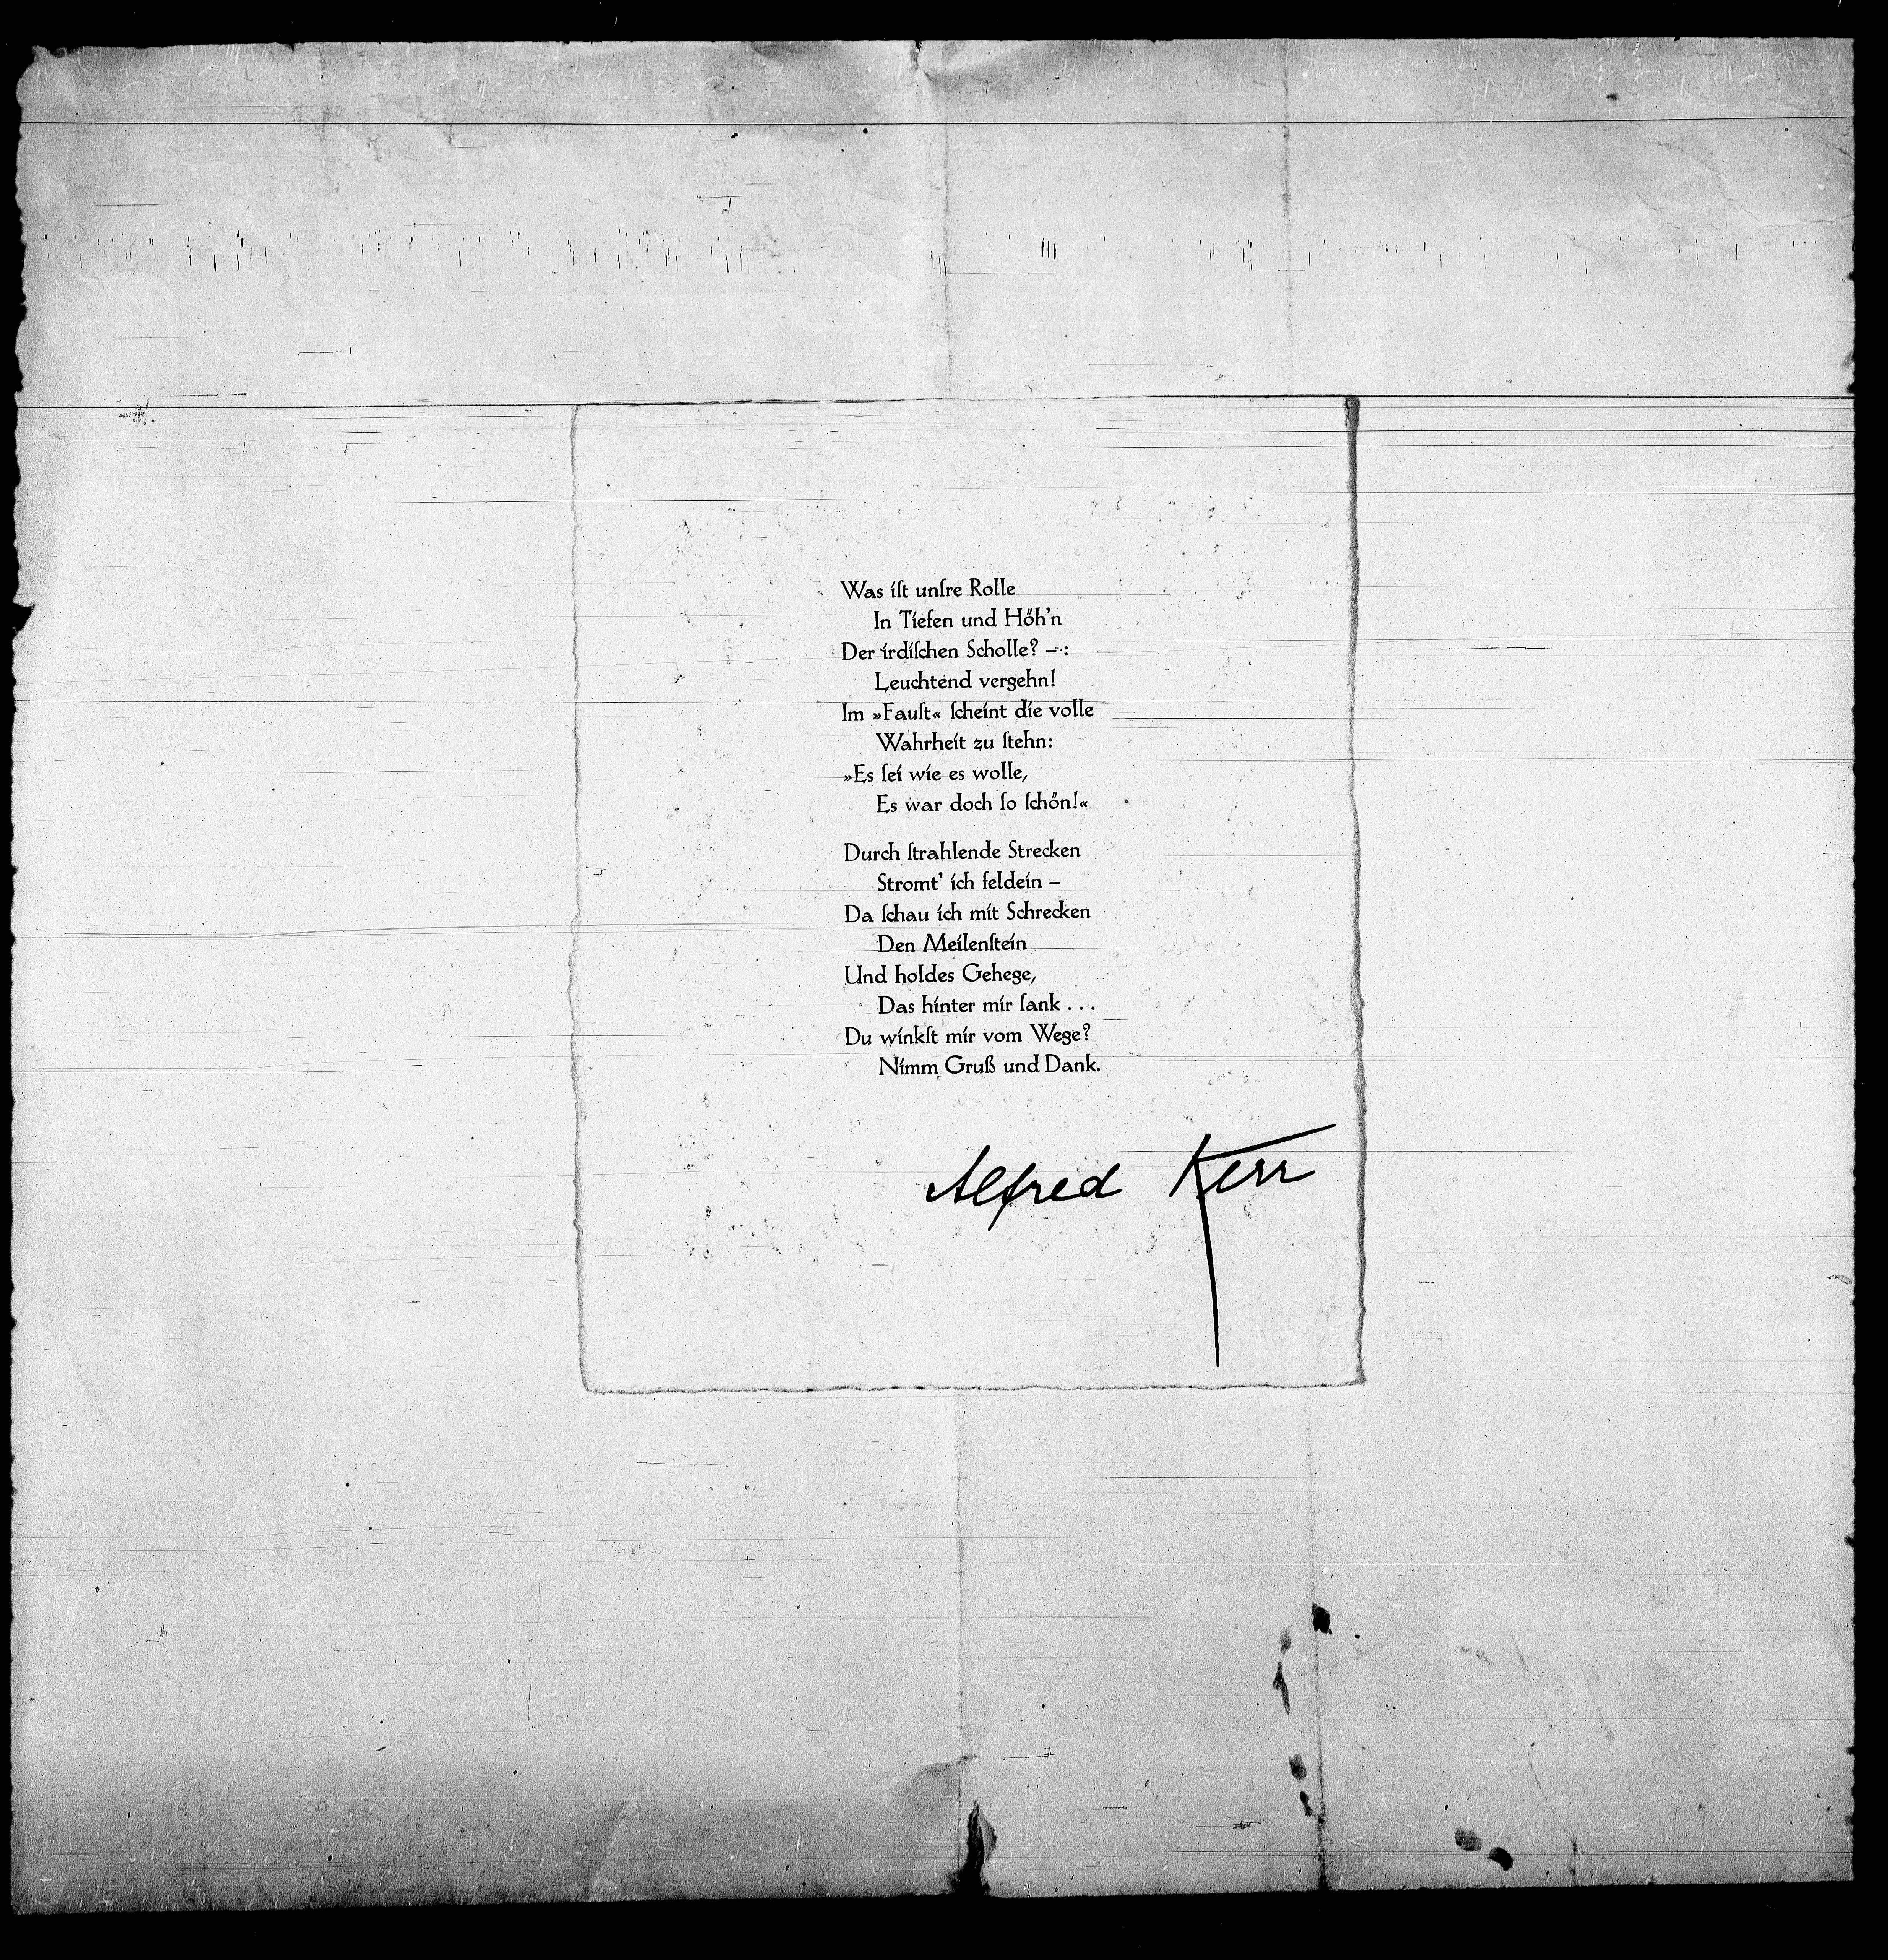 Was iſt unſre Rolle
In Tiefen und Höh’n
Der irdiſchen Scholle? – :
Leuchtend vergehn!
Im »Fauſt« ſcheint die volle
Wahrheit zu ſtehn:
»Es ſei wie es wolle,
Es war doch ſo ſchön!«
Durch ſtrahlende Strecken
Stromt’ ich feldein –
Da ſchau ich mit Schrecken
Den Meilenſtein
Und holdes Gehege,
Das hinter mir ſank . . .
Du winkſt mir vom Wege?
Nimm Gruß und Dank.
Alfred Kerr